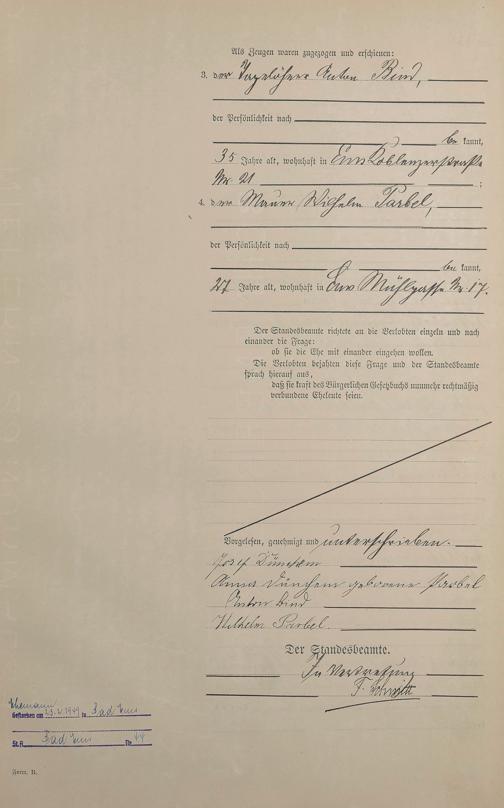 Als Zeugen waren zugezogen und erschienen:
3. der Tagelöhner Anton Bind,
der Persönlichkeit nach
be kannt,
35 Jahre alt, wohnhaft in Ems Koblenzerstraße
Nr. 21 ;
4. der Maurer Wilhelm Parbel,
der Persönlichkeit nach
be kannt,
27 Jahre alt, wohnhaft in Ems Mühlgasse Nr. 17.
Der Standesbeamte richtete an die Verlobten einzeln und nach
einander die Frage:
ob sie die Ehe mit einander eingehen wollen.
Die Verlobten bejahten diese Frage und der Standesbeamte
sprach hierauf aus,
daß sie kraft des Bürgerlichen Gesetzbuchs nunmehr rechtmäßig
verbundene Eheleute seien.
Vorgelesen, genehmigt und unterschrieben.
Josef
Anna geborene Parbel
Anton Bind
Wilhelm Parbel.
Der Standesbeamte.
In Vertretung
Ehemann
Gestorben am 1949 in Bad Ems
St. A. Bad Ems Nr. 44
Form. B.